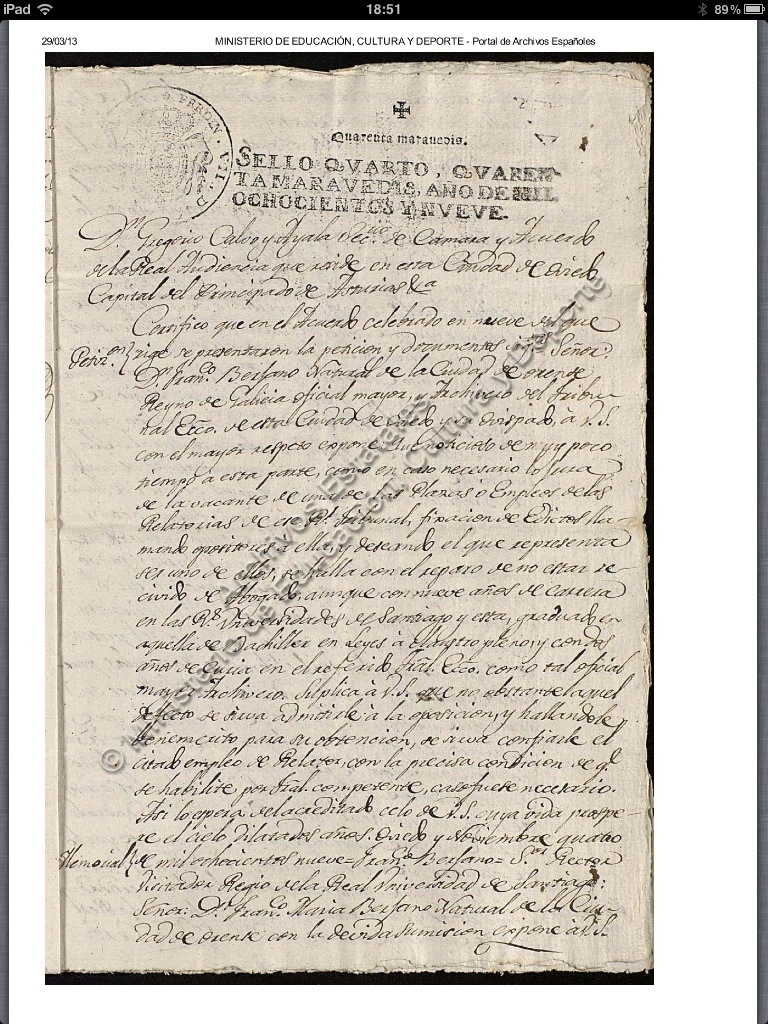 iPad 18:51 89%
29/03/13 MINISTERIO DE EDUCACIÓN, CULTURA Y DEPORTE - Portal de Archivos Españoles
Quarenta maravedis.
SELLO QVARTO, QVAREN-
TA MARAVEDIS, AÑO DE MIL
OCHOCIENTOS Y NVEVE.
FERDIN. VII.
Dn. Gregorio Calvo y Ayala Secrio. de Camara y Acuerdo
de la Real Audiencia que reside en esta Ciudad de Oviedo
Capital del Principado de Asturias &a
Certifico que en el Acuerdo celebrado en nueve del que
Peticion. rige se presentaron la peticion y documentos Señor:
Dn. Franco. Bersano Natural de la Ciudad de Orense
Reyno de Galicia oficial mayor, y Archivero del Tribu-
nal Ecco. de esta Ciudad de Oviedo y su Obispado, à V.S.
con el mayor respeto expone: Que noticioso de muy poco
tiempo à esta parte, como en caso necesario lo jura
de la vacante de una de las Plazas ò Empleos de las
Relatorias de ese Rl. Tribunal, fixacion de Edictos lla-
mando opositores à ella, y deseando, el que representa
ser uno de ellos, se halla con el reparo de no estar re-
civido de Abogado, aunque con nueve años de carrera
en las Rs. Universidades de Santiago y esta, graduado en
aquella de Bachiller en Leyes à claustro pleno, y con dos
años de Curia en el referido Tral. Ecco. como tal oficial
mayor Archivero. Suplica à V.S. que no obstante aquel
defecto se sirva admitirle à la oposicion, y hallandole
benemerito para su obtencion, se sirva confiarle el
citado empleo de Relator, con la precisa condicion de q.
se habilite por Tral. competente, caso fuese necesario.
Asi lo espera del acreditado celo de V.S. cuya vida prospe-
re el cielo dilatados años. Oviedo y Noviembre quatro
Memorial de mil ochocientos nueve= Franco. Bersano= Sor. Rector
Visitador Regio de la Real Universidad de Santiago:
Señor: Dn. Franco. Maria Bersano Natural de la Ciu-
dad de Orense con la devida sumision expone à V.S.
© Ministerio de Educación, Cultura y Deporte
Archivos Estatales